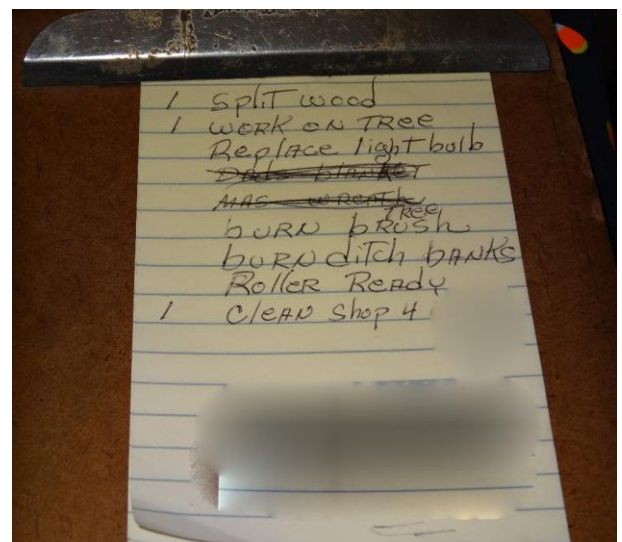 1 Split wood
1 WORK ON TREE
Replace lightbulb
Dads blanket
MAS WREATH
TREE
burn brush
burn ditch banks
Roller Ready
1 Clean Shop 4